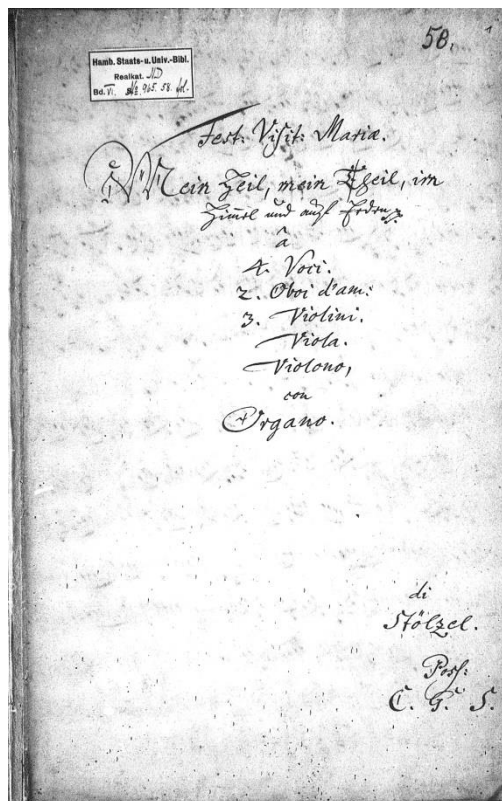 58.
1
Hamb. Staats- u. Univ.-Bibl.
Realkat. ND
Bd. VI. No. 965. 58. fol.
Fest: Visit: Mariæ.
Mein Heil, mein Theil, im
Himel und auf Erden
â
4. Voci.
2. Oboi d'am:
3. Violini.
Viola.
Violono,
con
Organo.
di
Stölzel.
Poss:
C. G. S.